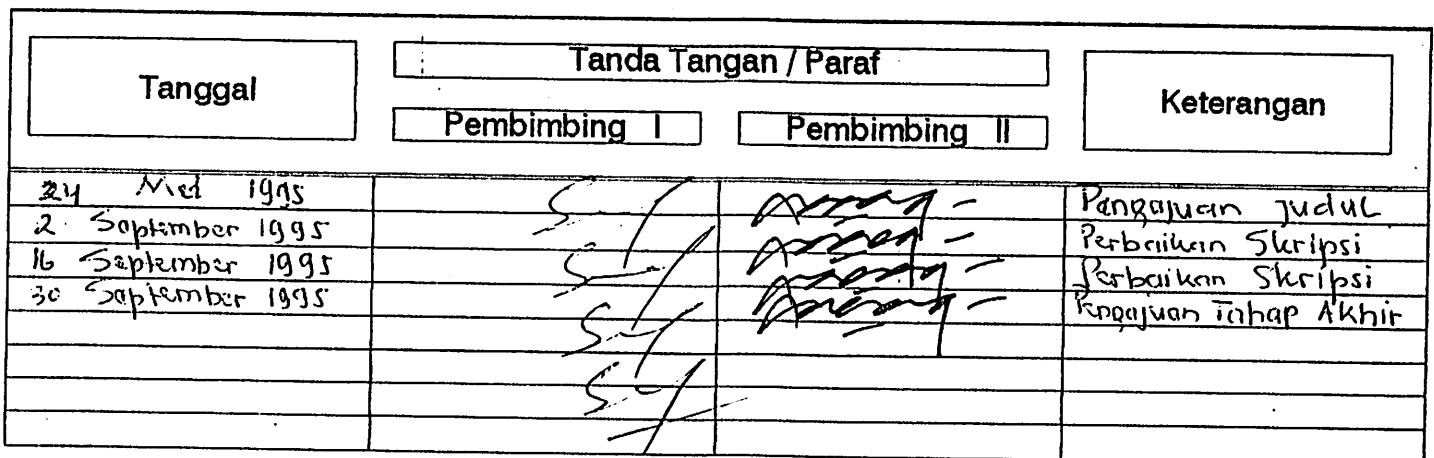 Tanggal
Tanda Tangan / Paraf
Keterangan
Pembimbing I
Pembimbing II
24 Mei 1995 Pengajuan Judul
2. September 1995 Perbaikan Skripsi
16 September 1995 Perbaikan Skripsi
30 September 1995 Pengajuan Tahap Akhir